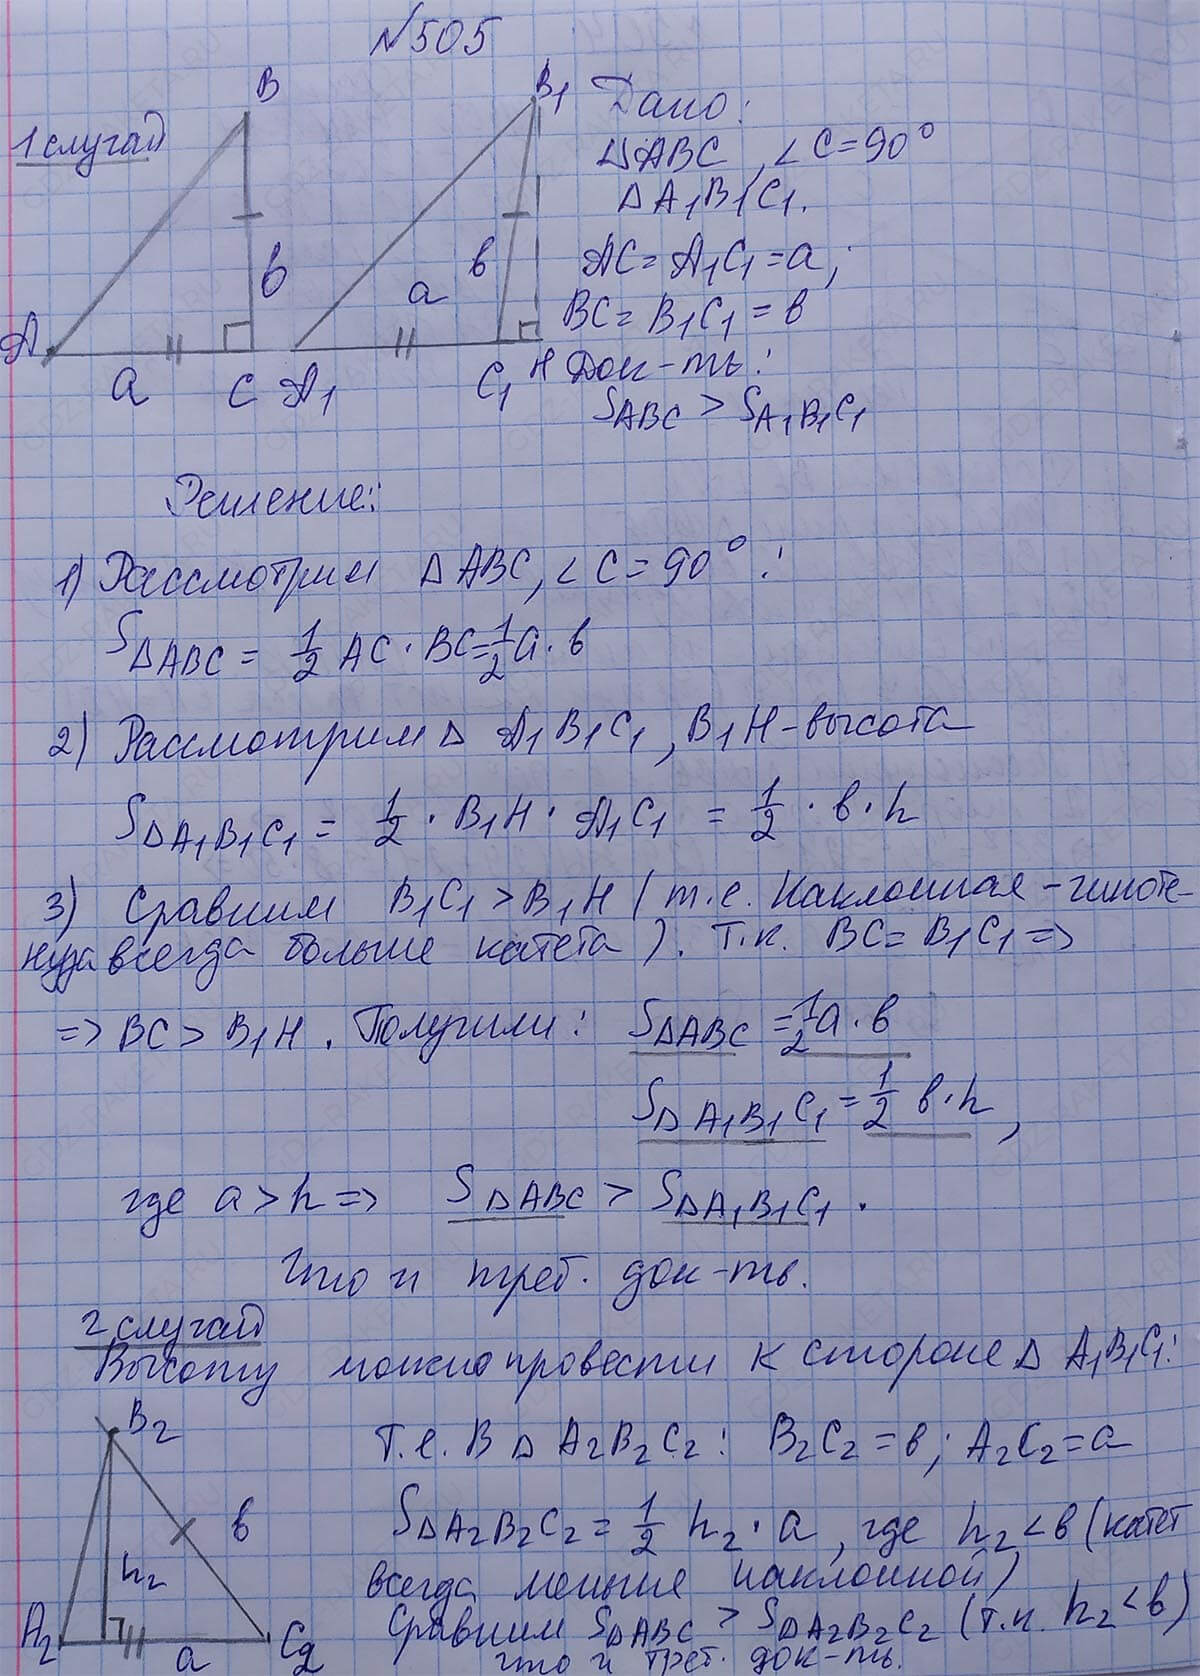 №505
1 случай
B
B1
Дано:
△ABC, ∠C=90°
△A1B1C1.
AC=A1C1=a;
BC=B1C1=в
Док-ть:
SABC > SA1B1C1
в
в
a
A
a
C
A1
C1
H
Решение:
1) Рассмотрим △ABC, ∠C=90°:
S△ABC = 1/2 AC·BC=1/2 a·в
2) Рассмотрим △ A1B1C1, B1H-высота
S△A1B1C1 = 1/2 · B1H · A1C1 = 1/2 · в · h
3) Сравним B1C1 > B1H (т.е. Наклонная - гипоте-
нуза всегда больше катета). Т.к. BC = B1C1 =>
=> BC > B1H. Получили: S△ABC = 1/2 a·в
S△A1B1C1 = 1/2 в·h,
где a > h => S△ABC > S△A1B1C1.
Что и треб. док-ть.
2 случай
Высоту можно провести к стороне △ A1B1C1:
B2
Т.е. в △ A2B2C2: B2C2 = в; A2C2 = a
в
S△A2B2C2 = 1/2 h2 · a, где h2 < в (катет
h2
всегда меньше наклонной)
A2
a
C2
Сравним S△ABC > S△A2B2C2 (т.к. h2 < в)
что и треб. док-ть.